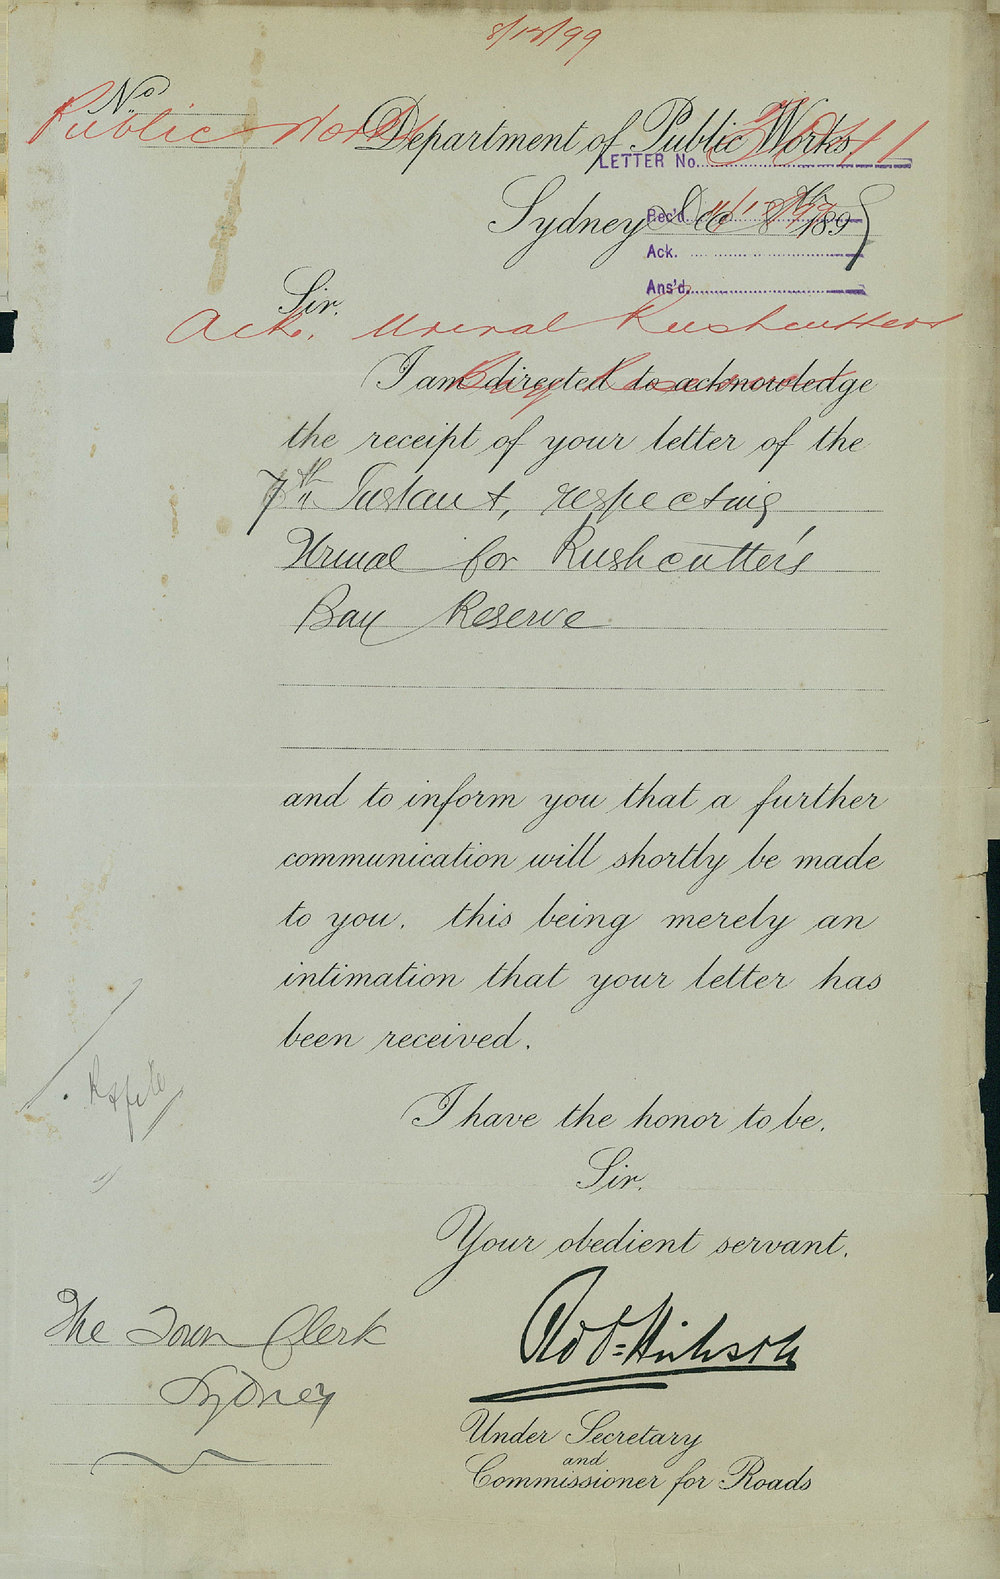 8/12/99
No
Public Works
Department of Public Works,
LETTER No.
Sydney Dec 8th 1899
Rec'd.
Ack.
Ans'd.
Sir.
Ack. Urinal Rushcutters
Bay Reserve
I am directed to acknowledge
the receipt of your letter of the
7th Instant, respecting
Urinal for Rushcutter's
Bay Reserve
and to inform you that a further
communication will shortly be made
to you, this being merely an
intimation that your letter has
been received.
I have the honor to be,
Sir,
Your obedient servant,
The Town Clerk
Sydney
Robt Hickson
Under Secretary
and
Commissioner for Roads